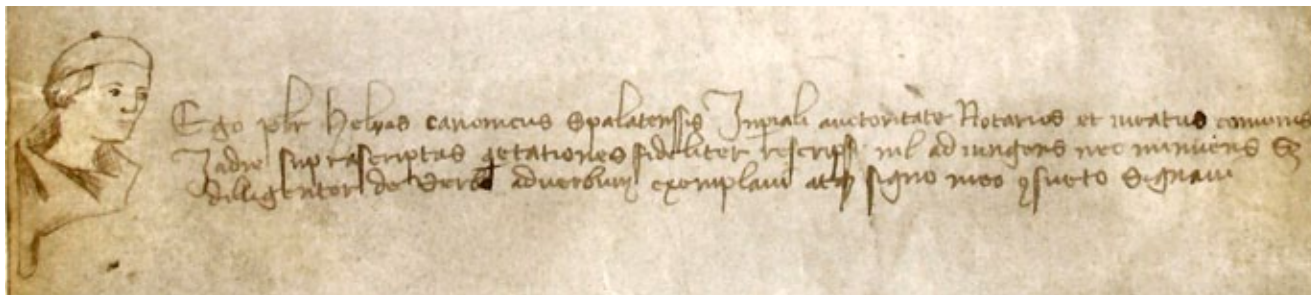 Ego pbr Helyas canonicus Spalatenssis Inperali auctoritate Notarius et iuratus comunis
Jadre suprascriptas getationes fideliter rescripsi nil ad iungens nec minuens S;
dilligenter de verbo adverbum exemplavi atq; signo meo gsueto Segnavi